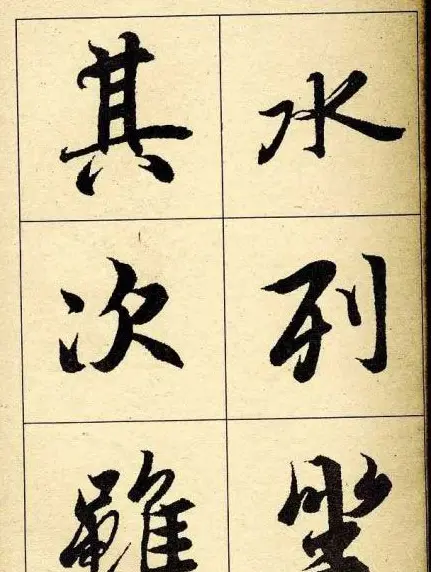 水列坐
其次雖